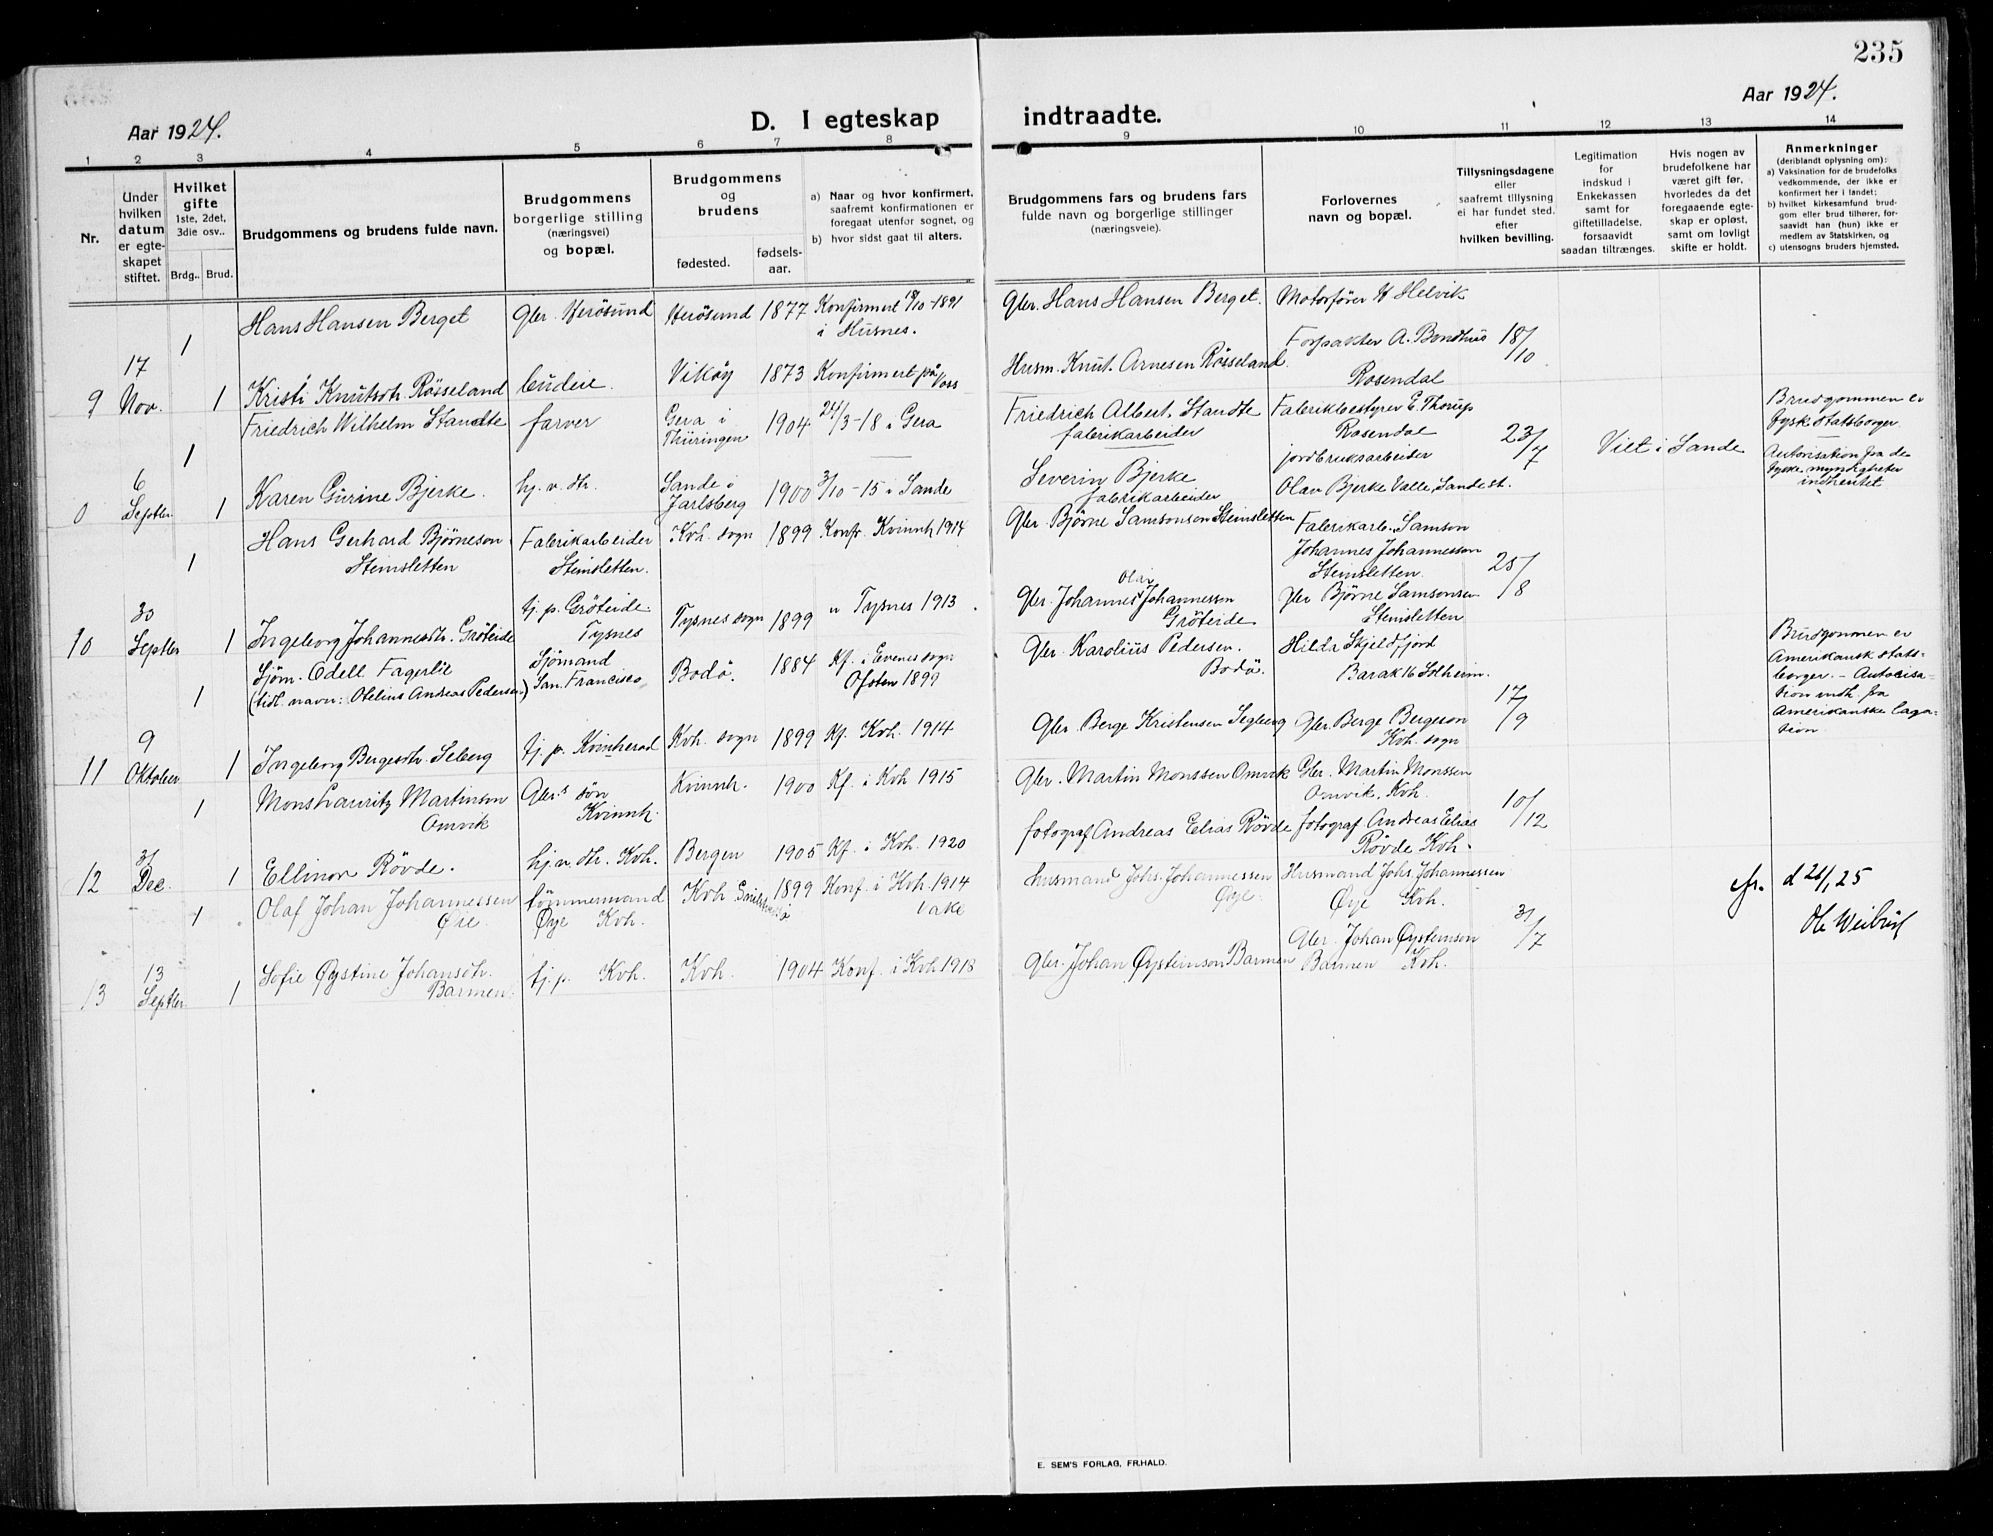 235
Aar 1924.
D. I egteskap
indtraadte.
Aar 1924.
1 2 3 4 5 6 7 8 9 10 11 12 13 14
Nr.
Under hvilken datum er egteskapet stiftet.
Hvilket gifte
1ste, 2det, 3die osv..
Brdg.. Brud.
Brudgommens og brudens fulde navn.
Brudgommens borgerlige stilling (næringsvei) og bopæl.
Brudgommens og brudens
fødested. fødselsaar.
a) Naar og hvor konfirmert, saafremt konfirmationen er foregaat utenfor sognet, og
b) hvor sidst gaat til alters.
Brudgommens fars og brudens fars fulde navn og borgerlige stillinger (næringsveie).
Forlovernes navn og bopæl.
Tillysningsdagene eller saafremt tillysning ei har fundet sted. efter hvilken bevilling.
Legitimation for indskud i Enkekassen samt for giftetilladelse, forsaavidt saadan tiltrænges.
Hvis nogen av brudefolkene har været gift før, hvorledes da det foregaaende egteskap er opløst, samt om lovligt skifte er holdt.
Anmerkninger
(deriblandt oplysning om):
a) Vaksination for de brudefolks vedkommende, der ikke er konfirmert her i landet;
b) hvilket kirkesamfund brudgom eller brud tilhører, forsaavidt han (hun) ikke er medlem av Statskirken, og
c) utensogns bruders hjemsted.
1 Hans Hansen Berget Gbr. Herösund Herösund 1877 Konfirmert 18/10-1891 i Husnes. Gbr. Hans Hansen Berget. Motorfører H Helvik
Forpakter A. Bondhus
Rosendal
18/10
9 17 Nov. 1 Kristi Knutsdt. Røisseland budeie. Vikøy 1873 Konfirmert på Voss Husm. Knut Arnesen Røisseland
1 Friedrich Wilhelm Standte farver Gera i Thüringen 1904 24/3-18 i Gera Friedrich Albert Standte
fabrikarbeider
Fabrikbestyrer E. Thorup
Rosendal
23/7
Viet i Sande
Brudgommen er tysk statsborger
Autorisation fra de tyske myndigheter indhentet
0 6 Septbr. 1 Karen Gurine Bjerke. hj. v. dt. Sande i Jarlsberg 1900 3/10-15 i Sande Severin Bjerke
fabrikarbeider
jordbruksarbeider
Olav Bjerke Valle, Sande st.
1 Hans Gerhard Bjørneson Steinsletten Fabrikarbeider Steinsletten. Kvh. sogn 1899 Konfr. Kvinnh 1914 Gbr. Bjørne Samsonsen Steinsletten
Fabrikarb. Samson Johannes Johannessen Steinsletten.
25/8
10 30 Septbr 1 Ingeborg Johannesdtr. Gröteide tj. p. Gröteide. Tysnes Tysnes sogn 1899 " Tysnes 1913. Gbr. Johannes Olav Johannessen Gröteide
Gbr Bjørne Samsonsen Steinsletten
1 Sjöm. Odell Fagerlie
(tidl. navn: Otelius Andreas Pedersen) Sjömand San. Francisco Bodö. 1884 Kf. i Evenes sogn Ofoten 1899 Gbr. Karolius Pedersen. Bodö.
Hilda Skjeldfjord
Barak 16 Solheim.
17/9
Brudgommen er Amerikansk statsborger. - Autorisation indh. fra Amerikanske Legation
11 9 Oktober 1 Ingeborg Bergesdtr Seberg tj. p. Kvinherad Kvh. sogn 1899 Kf. Kvh. 1914 Gbr Berge Kristensen Segberg
Gbr. Berge Bergeson Kvh. sogn
1 Mons Lauritz Martinsen Omvik Gbr.s sön Kvinnh. Kvinnh. 1900 Kf. i Kvh 1915 Gbr. Martin Monssen Omvik
Gbr. Martin Monssen Omvik. Kvh.
10/12
12 31 Dec. 1 Ellinor Rövde. hj. v. dt. Kvh. Bergen 1905 Kf. i Kvh. 1920 fotograf Andreas Elias Rövde
fotograf Andreas Elias Rövde Kvh.
1 Olaf Johan Johannessen Øie. tömmermand Øye Kvh. Kvh 1899 Konf. i Kvh. 1914 Husmand Johs. Johannessen Øye.
Husmand Johs. Johannessen Øye Kvh.
31/7
13 13 Septbr 1 Sofie Øystine Johansdtr. Barmen. tj. p. Kvh. Kvh. 1904 Konf. i Kvh 1918 Gbr. Johan Øysteinson Barmen
Gbr. Johan Øysteinson Barmen Kvh.
E. SEM'S FORLAG, FR.HALD.